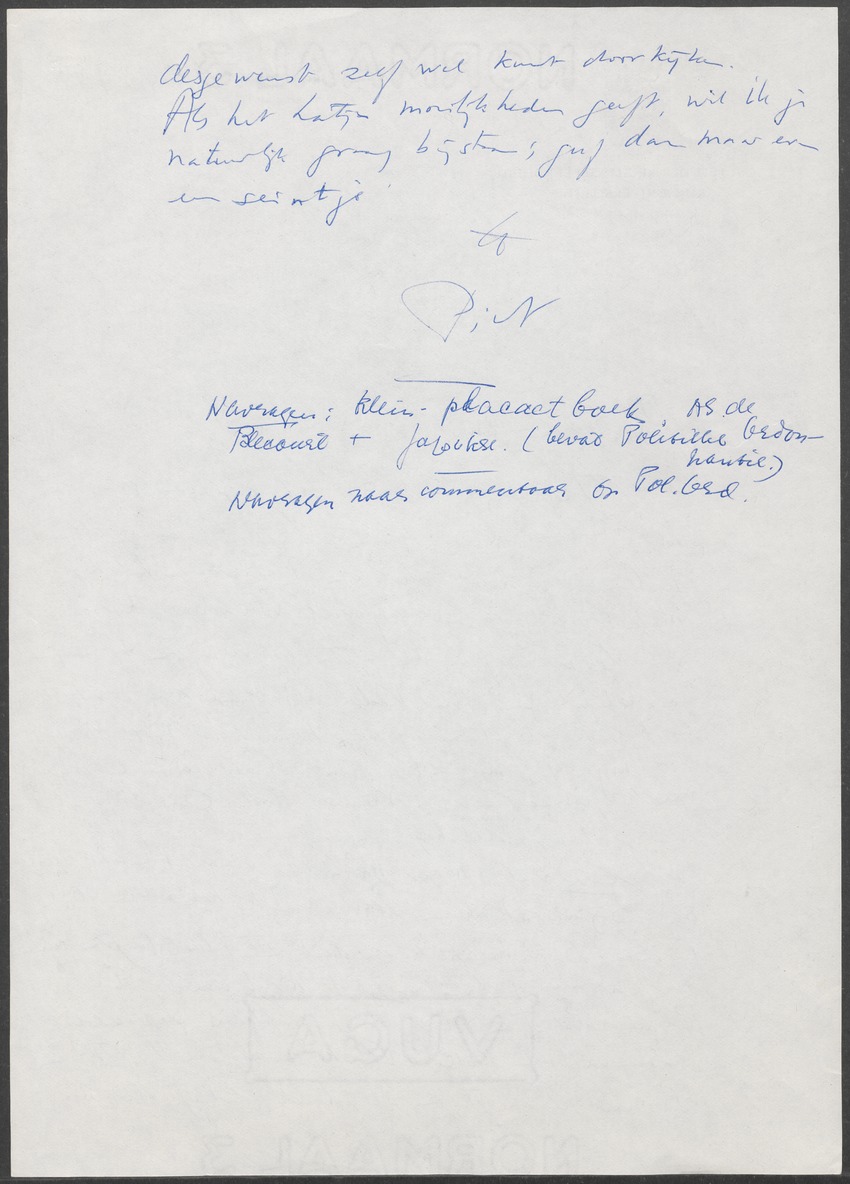 desgewenst zelf wel kunt doorkijken.
Als het Latijn moeilijkheden geeft, wil ik je
natuurlijk graag bijstaan; geef dan maar even
een seintje!
Piet
Navragen: Klein-placaetboek AS de
Blecourt + Japikse. (bevat Politieke Ordon-
nantie.)
Navragen naar commentaar op Pol. Ord.
VUGA
NORMAAL 3